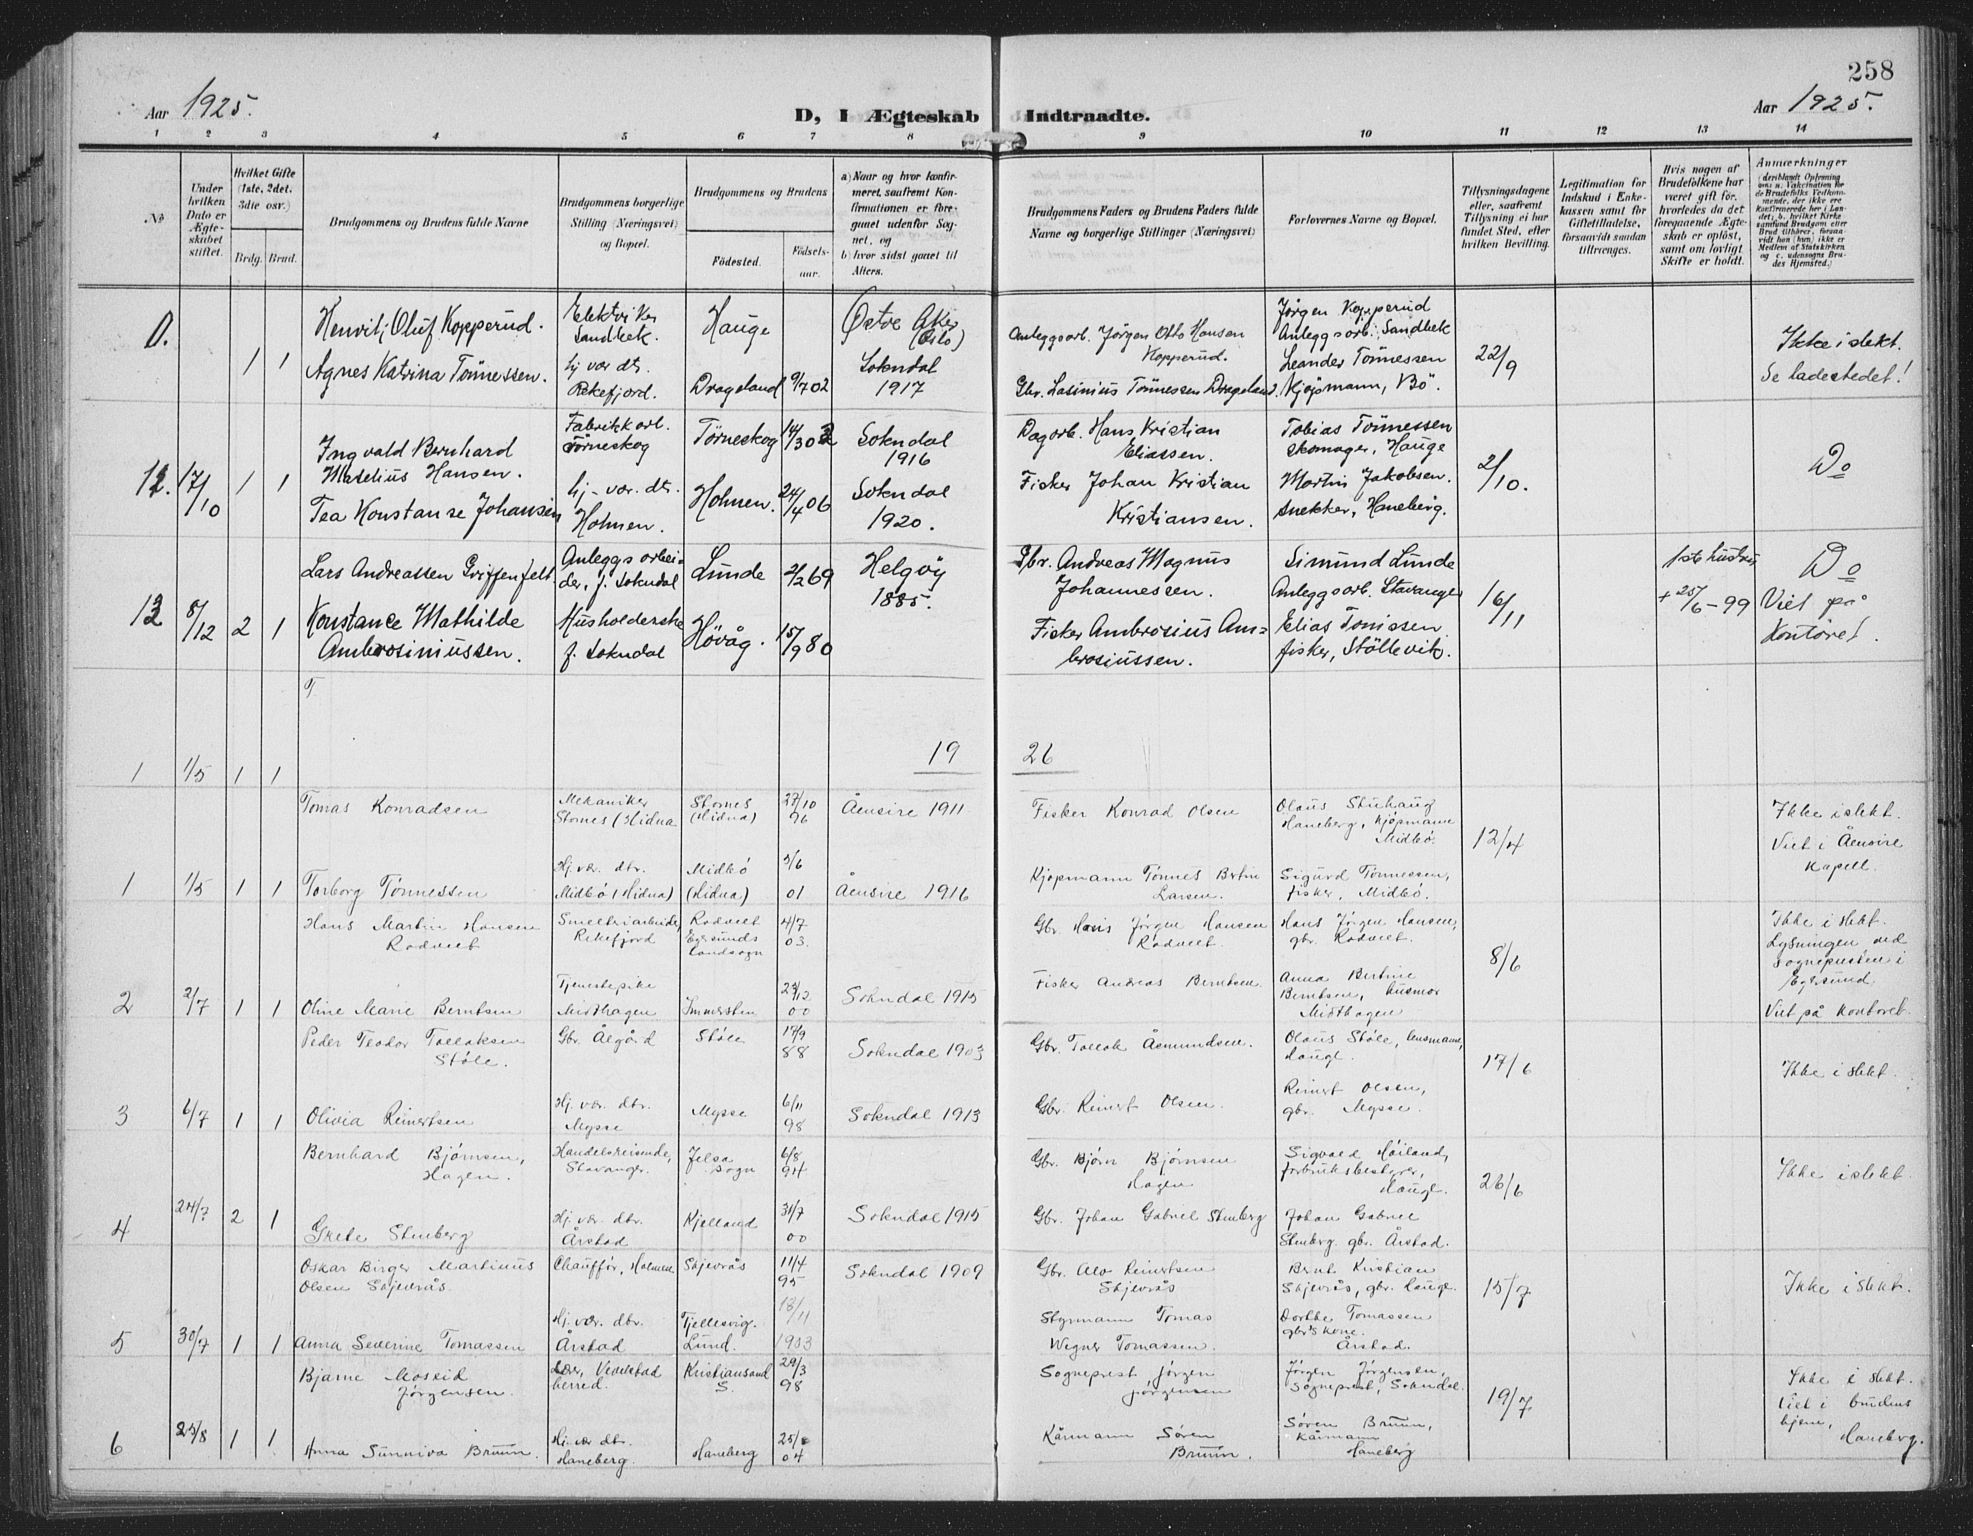 258
Aar 1925.
D, I Ægteskab Indtraadte.
Aar 1925.
1 2 3 4 5 6 7 8 9 10 11 12 13 14
No
Under hvilken Dato er Ægteskabet stiftet.
Hvilket Gifte (1ste, 2det, 3die osv.)
Brdg. Brud.
Brudgommens og Brudens fulde Navne
Brudgommens borgerlige Stilling (Næringsvei) og Bopæl.
Brudgommens og Brudens
Fødested.
Fødselsaar.
a) Naar og hvor konfirmeret, saafremt Konfirmationen er foregaaet udenfor Sognet, og
b) hvor sidst gaaet til Alters.
Brudgommens Faders og Brudens Faders fulde Navne og borgerlige Stillinger (Næringsvei)
Forlovernes Navne og Bopæl.
Tillysningsdagene eller, saafremt Tillysning ei har fundet Sted, efter hvilken Bevilling.
Legitimation for Indskud i Enkekassen samt for Giftetilladelse, forsaavidt saadan tiltrænges.
Hvis nogen af Brudefolkene har været gift før, hvorledes da det foregaaende Ægteskab er opløst, samt om lovligt Skifte er holdt.
Anmærkninger
0. 1 1
Henvik Oluf Kopperud. Elektriker Sandbek. Hauge Østre Aker (Oslo)
Anleggsarb. Jørgen Otto Hansen Kopperud. Jørgen Kopperud Anleggsarb. Sandbek
Agnes Katrina Tönnessen. Hj. vær dt. Rekefjord. Drageland 9/7 02 Sokndal 1917
Gbr. Lassinius Tönnessen Drageland. Leander Tönnessen Kjøpmann, Bö. 22/9 Ikke i slekt. Se ladestedet!
12. 17/10 1 1
Ingvald Bernhard Matelius Hansen. Fabrikkarb. Törneskog Törneskog 14/3 02 Sokndal 1916
Dagarb. Hans Kristian Eliassen. Tobias Tönnessen Skomager, Hauge
Tea Konstanse Johansen Hj. vær. dt. Holmen. Holmen. 24/4 06 Sokndal 1920.
Fisker Johan Kristian Kristiansen. Martin Jakobsen. Snekker, Haneberg. 2/10. Do
13 8/12 2 1
Lars Andreassen Griffenfelt. Anleggsarbeider, f. Sokndal Lunde 2/2 69 Helgöy 1885.
Gbr. Andreas Magnus Johannessen. Simund Lunde Anleggsarb. Stavanger
Konstance Mathilde Ambrosiniussen. Husholderske f. Sokndal Hövåg. 15/9 80
Fisker Ambrosius Ambrosiussen. Elias Tönissen fisker, Stöllevik. 16/11 1ste hustru + 25/6-99 Do Viet på Kontoret.
19 26
1 1/5 1 1
Tomas Konradsen Mekaniker Stornes (Hidna Stornes (Hidna) 27/10 96 Åensire 1911
Fisker Konrad Olsen Olaus Stuhaug Haneberg, Kjøpmann Midbö. 12/4 Ikke i slekt. Viet i Åensire Kapell.
1 1/5 1 1
Torborg Tönnessen Hj. vær. dtr. Midbö (Hidna) Midbö (Hidna) 3/6 01 Åensire 1916
Kjøpmann Tönnes Bertin Larsen. Sigurd Tönnessen, fisker, Midbö.
Hans Martin Hansen Rodveet Smelteriarbeider, Rekefjord Rodveet Egersunds Landsogn 4/7 03.
Gbr. Hans Jørgen Hansen Rodveet. Hans Jørgen Hansen, gbr. Rodveet. 8/6 Ikke i slekt. Lysningen ved sognepresten i Egersund. Viet på Kontoret.
2 2/7 1 1
Oline Marie Berntsen Tjenestepike Midthagen Immersten 23/12 00 Sokndal 1915
Fisker Andreas Berntsen. Anna Bertine Berntsen, husmor Midthagen
Peder Teodor Tollaksen Støle. Gbr. Ålgård Støle 17/9 88 Sokndal 1903
Gbr. Tollak Åsmundsen. Olaus Støle, lensmann, Hauge. 17/6 Ikke i slekt.
3 6/7 1 1
Olivia Reinertsen Hj. vær. dtr. Mysse Mysse 6/11 98 Sokndal 1913
Gbr. Reinert Olsen. Reinert Olsen, gbr. Mysse.
Bernhard Bjørnsen, Hagen. Handelsreisende, Stavanger. Jelsa Sogn 6/8 94
Gbr. Bjørn Bjørnsen Hagen Sigvald Høiland, forbruksbestyrer, Hauge. 26/6 Ikke i slekt.
4 24/7 2 1
Grete Stenberg Hj. vær. dtr. Årstad Kjelland 31/7 00 Sokndal 1915
Gbr. Johan Gabriel Stenberg Johan Gabriel Stenberg gbr. Årstad.
Oskar Birger Martinius Olsen Skjevrås. Chauffør, Holmen Skjevrås 11/4 95 Sokndal 1909
Gbr. Alv Reinertsen Skjevrås Bent Kristian Skjevrås, gbr. Hauge. 15/7 Ikke i slekt.
5 30/7 1 1
Anna Severine Tomassen Hj. vær. dtr. Årstad Tjellesvig. Lund. 13/11 1903
Styrmann Tomas Wegner Tomassen. Dorthe Tomassen gbr's kone. Årstad.
Bjarne Moseid Jørgensen. Lær, Vedestad herred. Kristiansand S. 29/3 98
Sogneprest Jørgen Jørgensen Jørgen Jørgensen, Sogneprest, Sokndal. 19/7 Ikke i slekt. Viet i brudens hjem, Haneberg.
6 25/8 1 1
Anna Sunniva Bruun Hj. vær dtr. Haneberg. Haneberg 04
Kårmann Søren Bruun. Søren Bruun, Kårmann Haneberg